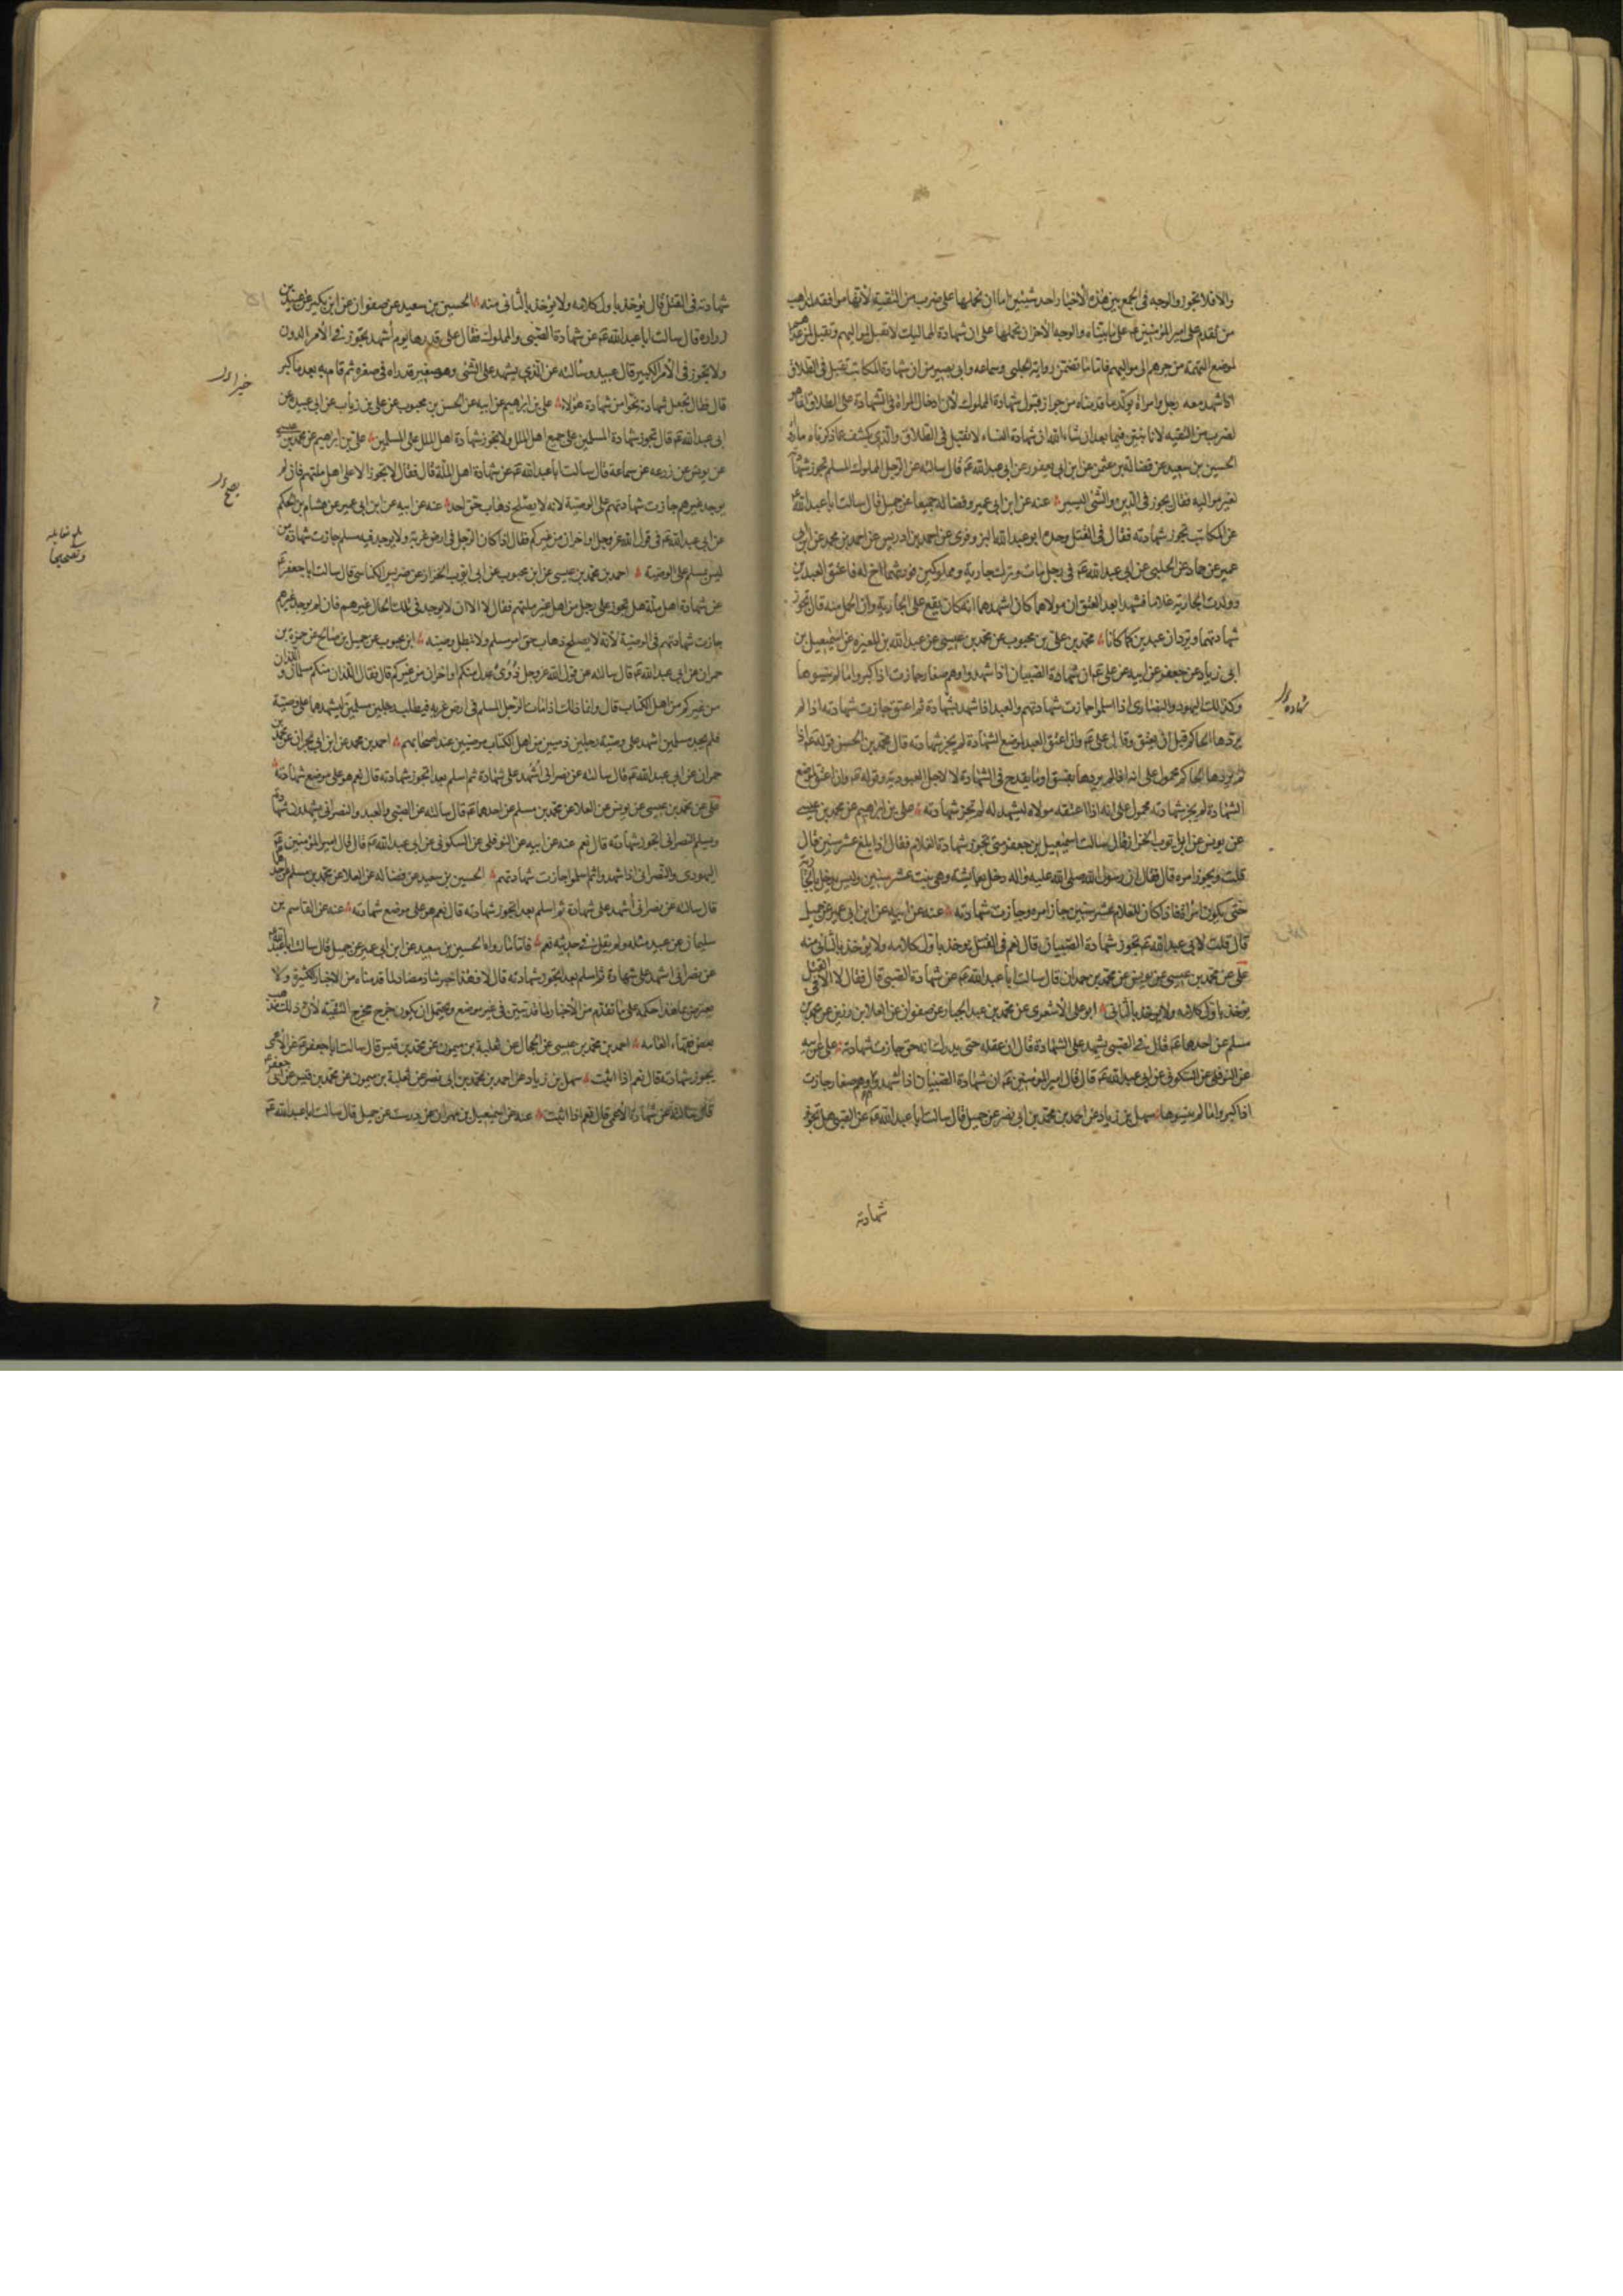 والا فلا تجوز والوجه فى الجمع بين هذه الأخبار احد شيئين اما ان نحملها على ضرب من التقية لأنها موافقة لمذاهب
من تقدم على امير المؤمنين عم على ما بيناه والوجه الأخر ان نحملها على ان شهادة المماليك لا تقبل لمواليهم وتقبل لمن عداهم
لموضع التهمة من جرهم الى مواليهم فاما ما تضمن رواية الحلبى وسماعه وابى بصير من ان شهادة المكاتب تقبل فى الطلاق
اذا شهد معه رجل وامراة يؤكد ما قدمناه من جواز قبول شهادة المملوك لأن ادخال المراة فى الشهادة على الطلاق انما هو
لضرب من التقيه لانا نبين فيما بعد ان شاء الله ان شهادة النساء لا تقبل فى الطلاق والذى يكشف عما ذكرناه ما رواه
الحسين بن سعيد عن فضالة بن عثمن عن ابن ابى يعفور عن ابى عبد الله عم قال سالته عن الرجل المملوك المسلم تجوز شهادته
لغير مواليه فقال يجوز فى الدين والشئ اليسير عنه عن ابن ابى عمير وفضاله جميعا عن جميل قال سالت ابا عبد الله عم
عن المكاتب تجوز شهادته فقال فى القتل وحده ابو عبد الله البزوفرى عن احمد بن ادريس عن احمد بن محمد عن ابن ابى
عمير عن حماد عن الحلبى عن ابى عبد الله عم فى رجل مات وترك جارية ومملوكين فورثهما اخ له فاعتق العبدين
وولدت الجارية غلاما فشهدا بعد العتق ان مولاهما كان اشهدهما انه كان يقع على الجارية وان الحمل منه قال تجوز
شهادتهما ويردان عبدين كما كانا محمد بن على بن محبوب عن محمد بن عيسى عن عبد الله بن المغيره عن اسمعيل بن
ابى زياد عن جعفر عن ابيه عن على عم ان شهادة الصبيان اذا شهدوا وهم صغار جازت اذا كبروا ما لم ينسوها
وكذلك اليهود والنصارى اذا اسلموا جازت شهادتهم والعبد اذا شهد بشهادة ثم اعتق جازت شهادته اذا لم
يردها الحاكم قبل ان يعتق وقال على عم وان اعتق العبد لموضع الشهادة لم يجز شهادته قال محمد بن الحسن قوله عم اذا
لم يردها الحاكم محمول على انه اذا لم يردها بفسق او ما يقدح فى الشهادة لا لاجل العبودية وقوله عم وان اعتق لموضع
الشهادة لم يجز شهادته محمول على انه اذا اعتقه مولاه ليشهد له لم تجز شهادته على بن ابرهيم عن محمد بن عيسى
عن يونس عن ابى ايوب الخزاز قال سالت اسمعيل بن جعفر متى تجوز شهادة الغلام فقال اذا بلغ عشر سنين قال
قلت ويجوز امره قال فقال ان رسول الله صلى الله عليه واله دخل بعايشة وهى بنت عشر سنين وليس يدخل بالجارية
حتى يكون امراة فاذا كان للغلام عشر سنين جاز امره وجازت شهادته عنه عن ابيه عن ابن ابى عمير عن جميل
قال قلت لابى عبد الله عم تجوز شهادة الصبيان قال نعم فى القتل يوخذ باول كلامه ولا يؤخذ بالثانى منه
على عن محمد بن عيسى عن يونس عن محمد بن حمران قال سالت ابا عبد الله عم عن شهادة الصبى قال فقال لا الا فى القتل
يؤخذ باول كلامه ولا يوخذ بالثانى ابو على الأشعرى عن محمد بن عبد الجبار عن صفوان عن العلا بن رزين عن محمد بن
مسلم عن احدهما عم قال فى الصبى يشهد على الشهادة قال ان عقله حتى يدرك انه حق جازت شهادته على عن ابيه
عن النوفلى عن السكونى عن ابى عبد الله عم قال قال امير المؤمنين عم ان شهادة الصبيان اذا اشهدوا وهم صغار جازت
اذا كبروا ما لم ينسوها سهل بن زياد عن احمد بن محمد بن ابى نصر عن جميل قال سالت ابا عبد الله عم عن الصبى هل تجوز
شهادته
شهادته فى القتل قال يؤخذ باول كلامه ولا يؤخذ بالثانى منه الحسين بن سعيد عن صفوان عن ابن بكير عن عبيد بن
زراره قال سالت ابا عبد الله عم عن شهادة الصبى والمملوك فقال على قدرها يوم اشهد تجوز فى الأمر الدون
ولا يجوز فى الأمر الكبير قال عبيد وسالته عن الذى يشهد على الشئ وهو صغير قد راه فى صغره ثم قام به بعد ما كبر
قال فقال تجعل شهادته نحوا من شهادة هؤلاء على بن ابرهيم عن ابيه عن الحسن بن محبوب عن على بن رياب عن ابى عبيده عن
ابى عبد الله عم قال تجوز شهادة المسلمين على جميع اهل الملل ولا تجوز شهادة اهل الملل على المسلمين على بن ابرهيم عن محمد بن عيسى
عن يونس عن زرعه عن سماعة قال سالت ابا عبد الله عم عن شهادة اهل الملة قال فقال لا تجوز الا على اهل ملتهم فان لم
يوجد غيرهم جازت شهادتهم على الوصية لانه لا يصلح ذهاب حق احد عنه عن ابيه عن ابن ابى عمير عن هشام بن الحكم
عن ابى عبد الله عم فى قول الله عز وجل او اخران من غيركم فقال اذا كان الرجل فى ارض غربة ولا يوجد فيه مسلم جازت شهادة من
ليس بمسلم على الوصية احمد بن محمد بن عيسى عن ابن محبوب عن ابى ايوب الخزاز عن ضريس الكناسى قال سالت ابا جعفر عم
عن شهادة اهل ملة هل تجوز على رجل من اهل غير ملتهم فقال لا الا ان لا يوجد فى تلك الحال غيرهم فان لم يوجد غيرهم
جازت شهادتهم فى الوصية لأنه لا يصلح ذهاب حق امر مسلم ولا تبطل وصيته ابن محبوب عن جميل بن صالح عن حمزة بن
حمران عن ابى عبد الله عم قال سالته عن قول الله عز وجل ذوى عدل منكم او اخران من غيركم قال فقال اللذان منكم مسلمان واللذان
من غيركم من اهل الكتاب قال وانما ذلك اذا مات الرجل المسلم فى ارض غربه فيطلب رجلين مسلمين ليشهدهما على وصيته
فلم يجد مسلمين اشهد على وصيته رجلين ذميين من اهل الكتاب مرضيين عند اصحابهم احمد بن محمد عن ابن ابى نجران عن محمد بن
حمران عن ابى عبد الله عم قال سالته عن نصرانى أشهد على شهادة ثم اسلم بعد اتجوز شهادته قال نعم هو على موضع شهادته
على عن محمد بن عيسى عن يونس عن العلا عن محمد بن مسلم عن احدهما عم قال سالته عن الصبى والعبد والنصرانى يشهدون شهادة
ويسلم النصرانى اتجوز شهادته قال نعم عنه عن ابيه عن النوفلى عن السكونى عن ابى عبد الله عم قال قال امير المؤمنين عم
اليهودى والنصرانى اذا شهدوا ثم اسلموا جازت شهادتهم الحسين بن سعيد عن فضاله عن العلا عن محمد بن مسلم عن احدهما
قال سالته عن نصرانى أشهد على شهادة ثم اسلم بعد اتجوز شهادته قال نعم هو على موضع شهادته عنه عن القاسم بن
سليمان عن عبيد مثله ولم يقل فى حديثه نعم فاما ما رواه الحسين بن سعيد عن ابن ابى عمير عن جميل قال سالت ابا عبد الله عم
عن نصرانى اشهد على شهادة ثم اسلم بعد اتجوز شهادته قال لا فهذا خبر شاذ مضاد لما قدمناه من الاخبار الكثيرة ولا
يعترض بما هذا حكمه على ما تقدم من الأخبار لما قد تبين فى غير موضع ويحتمل ان يكون خرج مخرج التقية لأن ذلك مذهب
بعض فقهاء العامه احمد بن محمد بن عيسى عن الحجال عن ثعلبة بن ميمون عن محمد بن قيس قال سالت ابا جعفر عم عن الأعمى
يجوز شهادته قال نعم اذا اثبت سهل بن زياد عن احمد بن محمد بن ابى نصر عن ثعلبة بن ميمون عن محمد بن قيس عن ابى جعفر عم
قال سالته عن شهادة الأعمى قال نعم اذا اثبت عنه عن اسمعيل بن مهران عن درست عن جميل قال سالت ابا عبد الله عم